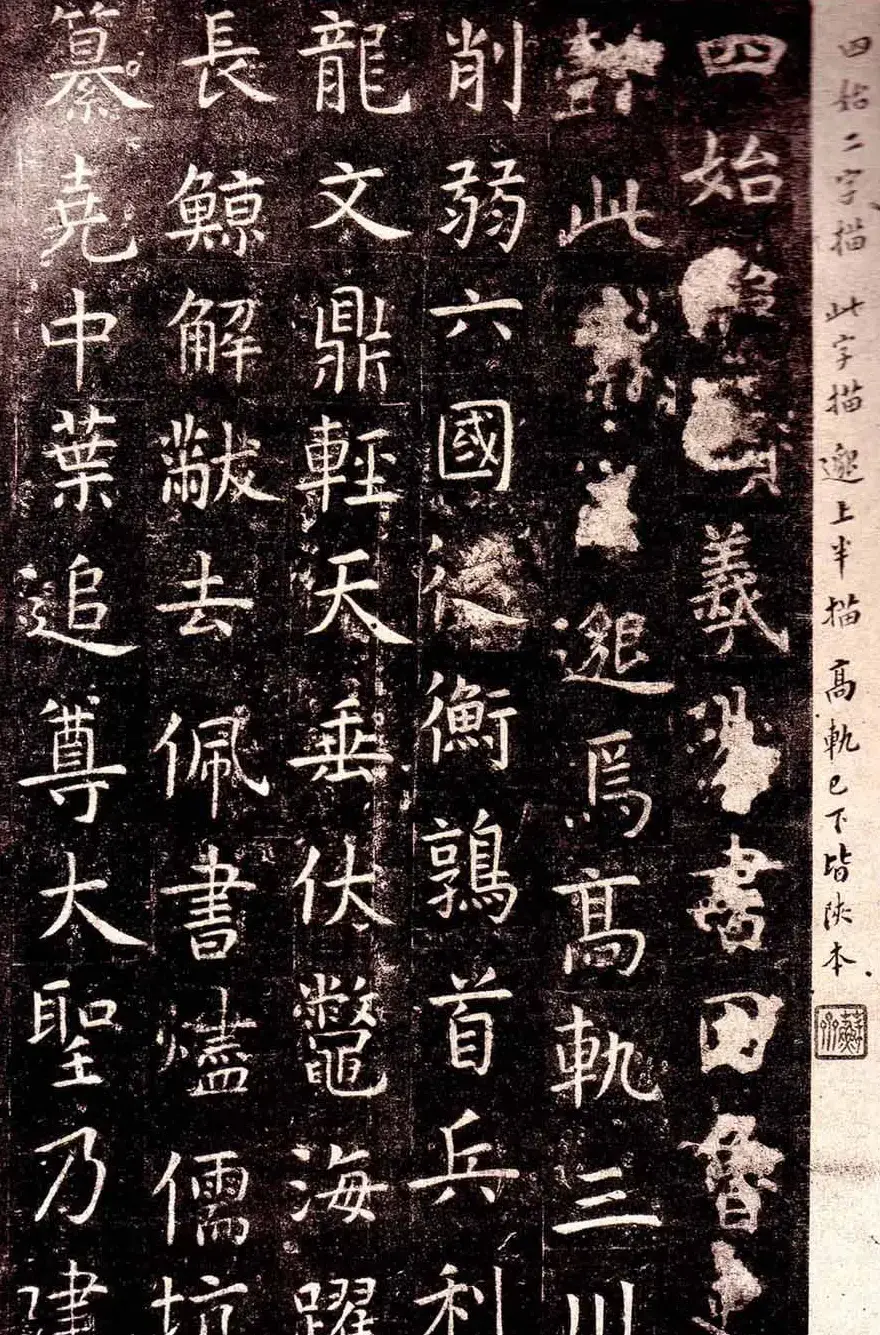 四始二字描 此字描 邈上半描 高軌已下皆陝本
四始羲書因魯
此邈焉高軌三川
削弱六國從衡鶉首兵利
龍文鼎輕天垂伏鼈海躍
長鯨解黻去佩書燼儒坑
纂堯中葉追尊大聖乃建